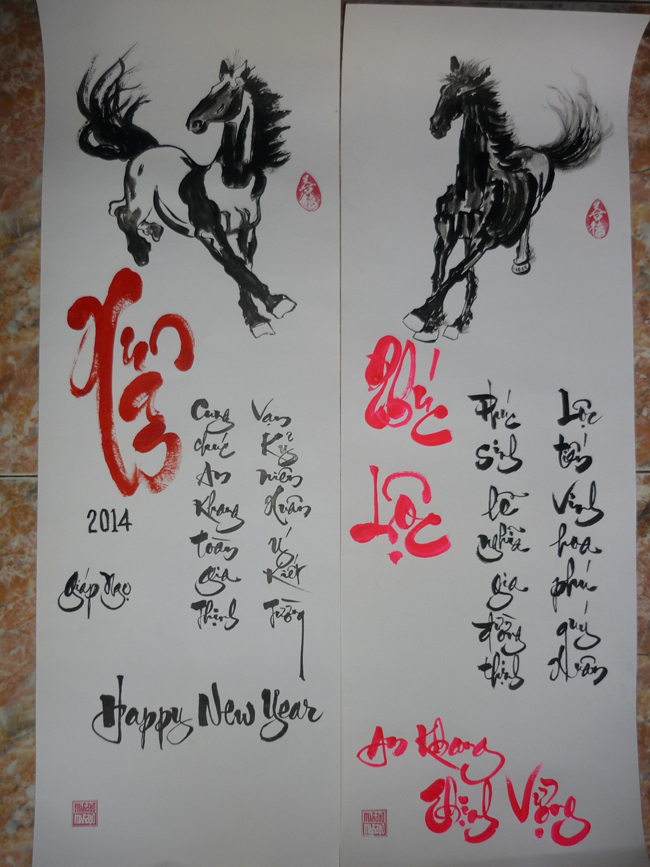 Xuân
2014
Giáp Ngọ
Cung chúc An Khang toàn gia Thịnh
Vạn Kỷ niên Xuân ý Kiết Tường
Happy New Year
Phúc
Lộc
Phúc sinh lễ nghĩa gia đường thịnh
Lộc tấn Vinh hoa phú quý Xuân
An Khang
Thịnh Vượng